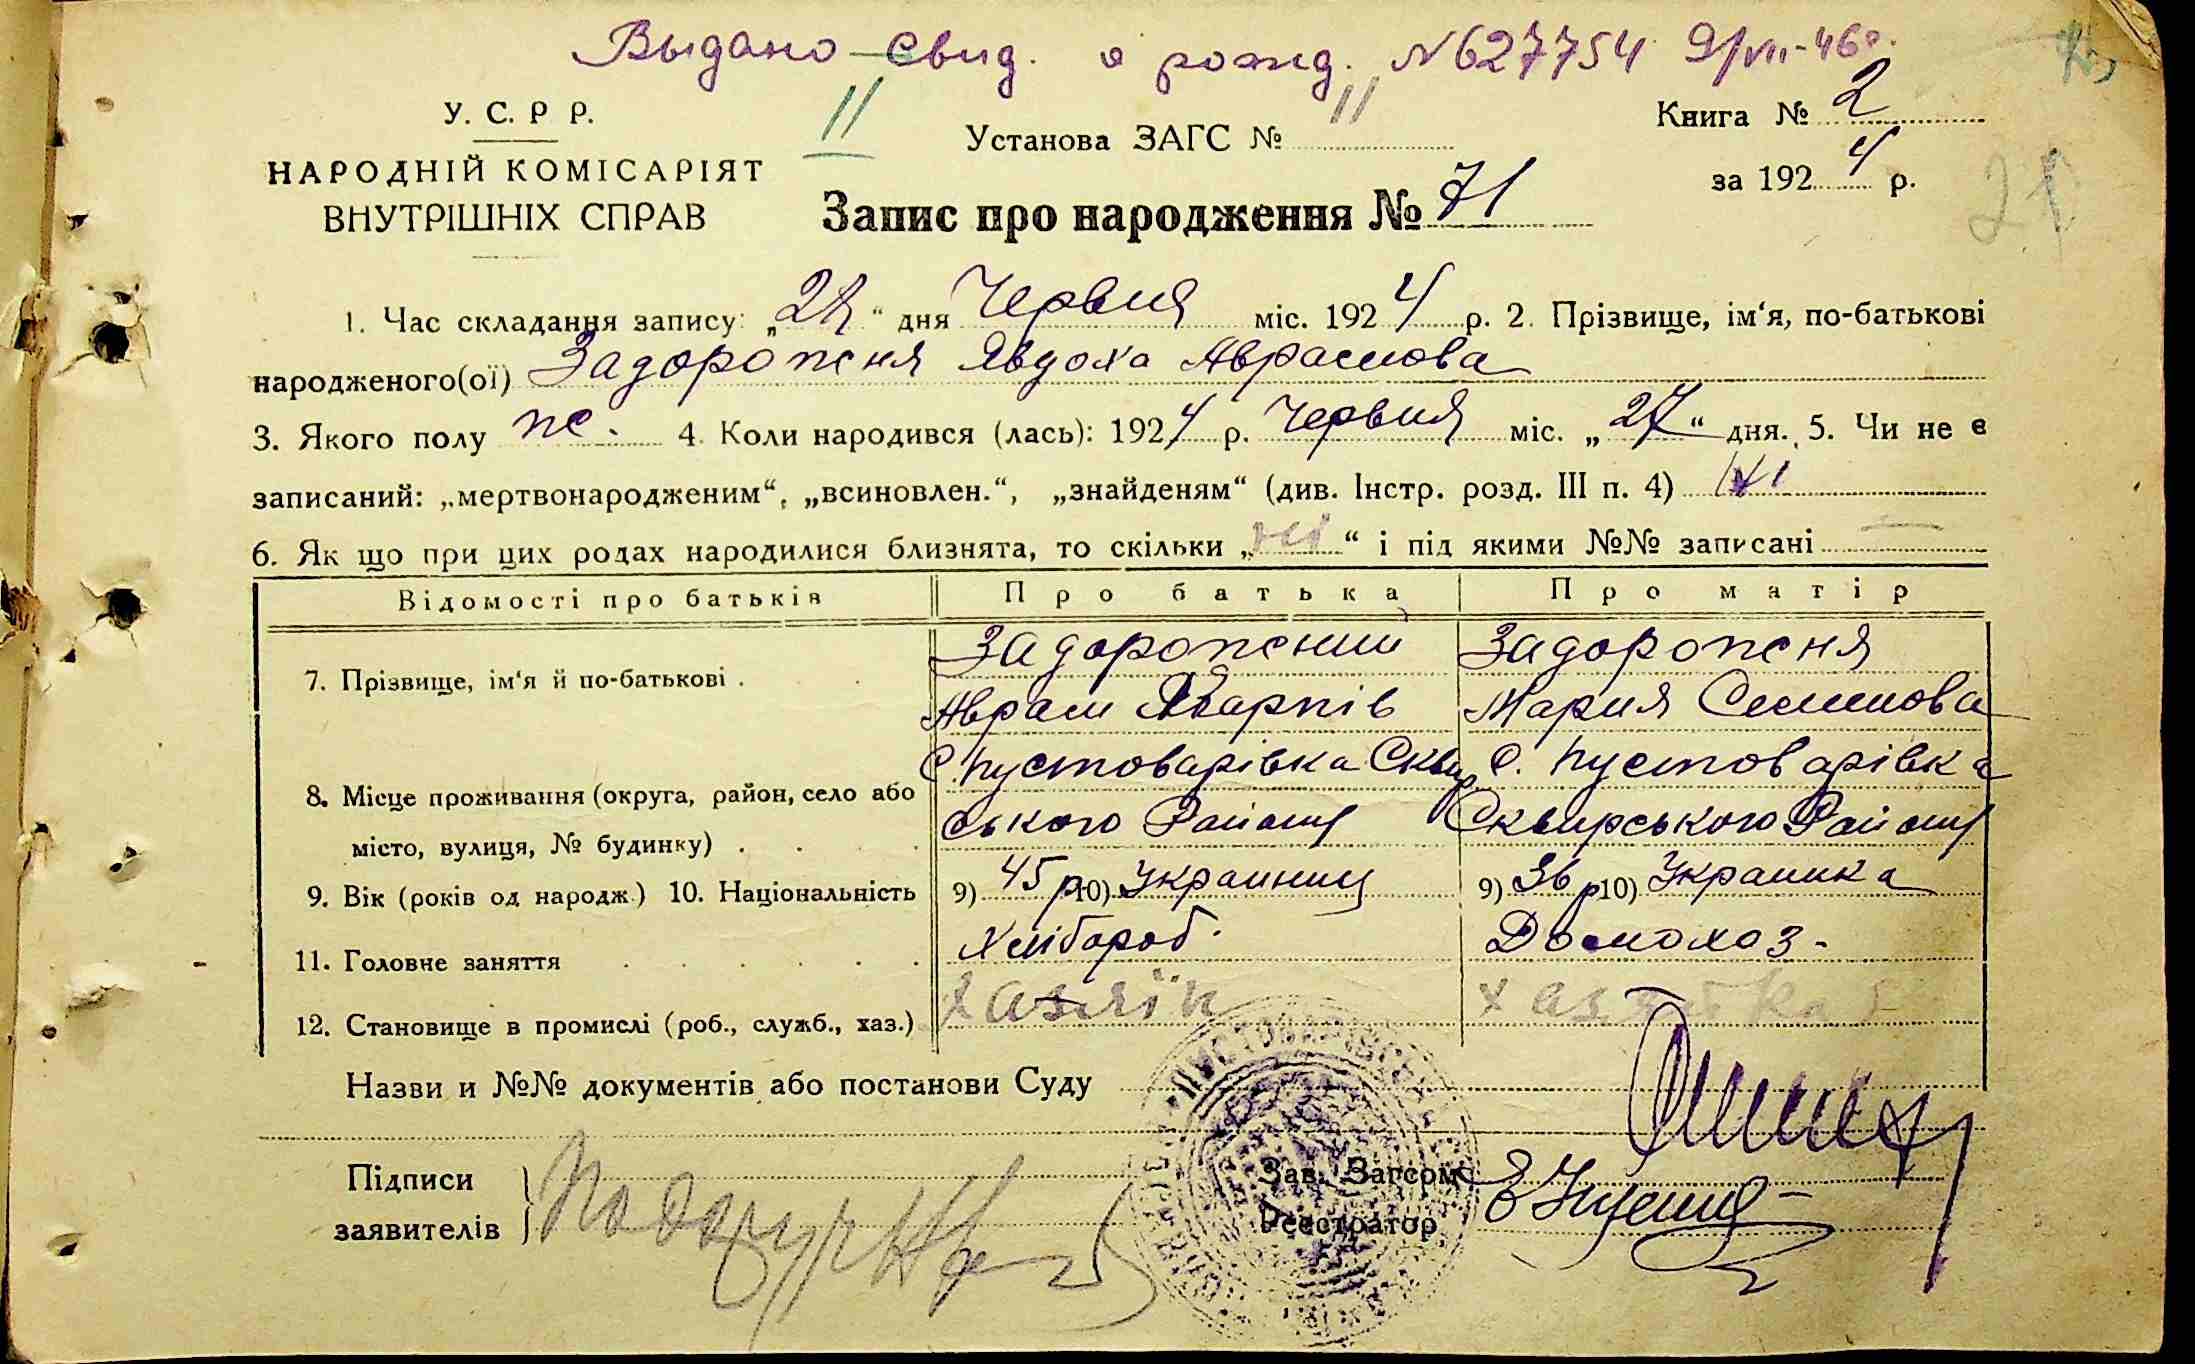 Выдано свид. о рожд. N 627754 9/VII-46г.
У. С. Р Р.
НАРОДНІЙ КОМІСАРІЯТ
ВНУТРІШНІХ СПРАВ
11
Установа ЗАГС № 11
Книга № 2
за 1924 р.
Запис про народження № 71
1. Час складання запису: „28“ дня Червня міс. 1924 р. 2. Прізвище, ім'я, по-батькові
народженого(ої) Задорожня Явдоха Аврамова
3. Якого полу ж. 4. Коли народився (лась): 1924 р. Червня міс. „27“ дня. 5. Чи не є
записаний: „мертвонародженим“, „всиновлен.“, „знайденям“ (див. Інстр. розд. III п. 4) Ні
6. Як що при цих родах народилися близнята, то скільки „ні“ і під якими №№ записані —
Відомості про батьків Про батька Про матір
7. Прізвище, ім'я й по-батькові . Задорожний Задорожня
Аврам Марія Семенова
С. Пустоварівка Сквир С. Пустоварівка
8. Місце проживання (округа, район, село або
місто, вулиця, № будинку) . ського Району Сквирського Району
9. Вік (років од народж.) 10. Національність 9) 45 р 10) Украинец 9) 36 р 10) Украинка
11. Головне заняття Хлібороб. Домохоз.
12. Становище в промислі (роб., служб., хаз.) хазяїн хазяйка
Назви и №№ документів або постанови Суду
Підписи
заявителів
Зав. Загсом
Реєстратор